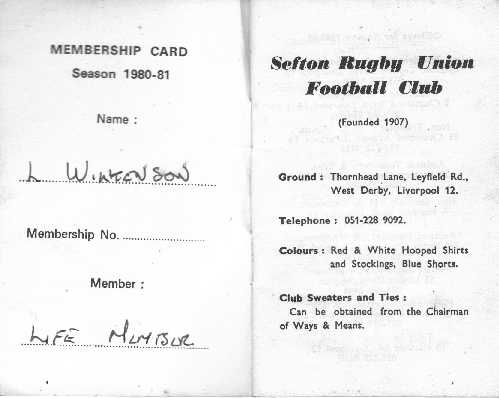 MEMBERSHIP CARD
Season 1980-81
Name :
L Wilkenson
Membership No. ........................
Member :
LIFE MEMBER
Sefton Rugby Union
Football Club
(Founded 1907)
Ground : Thornhead Lane, Leyfield Rd.,
West Derby, Liverpool 12.
Telephone : 051-228 9092.
Colours : Red & White Hooped Shirts
and Stockings, Blue Shorts.
Club Sweaters and Ties :
Can be obtained from the Chairman
of Ways & Means.